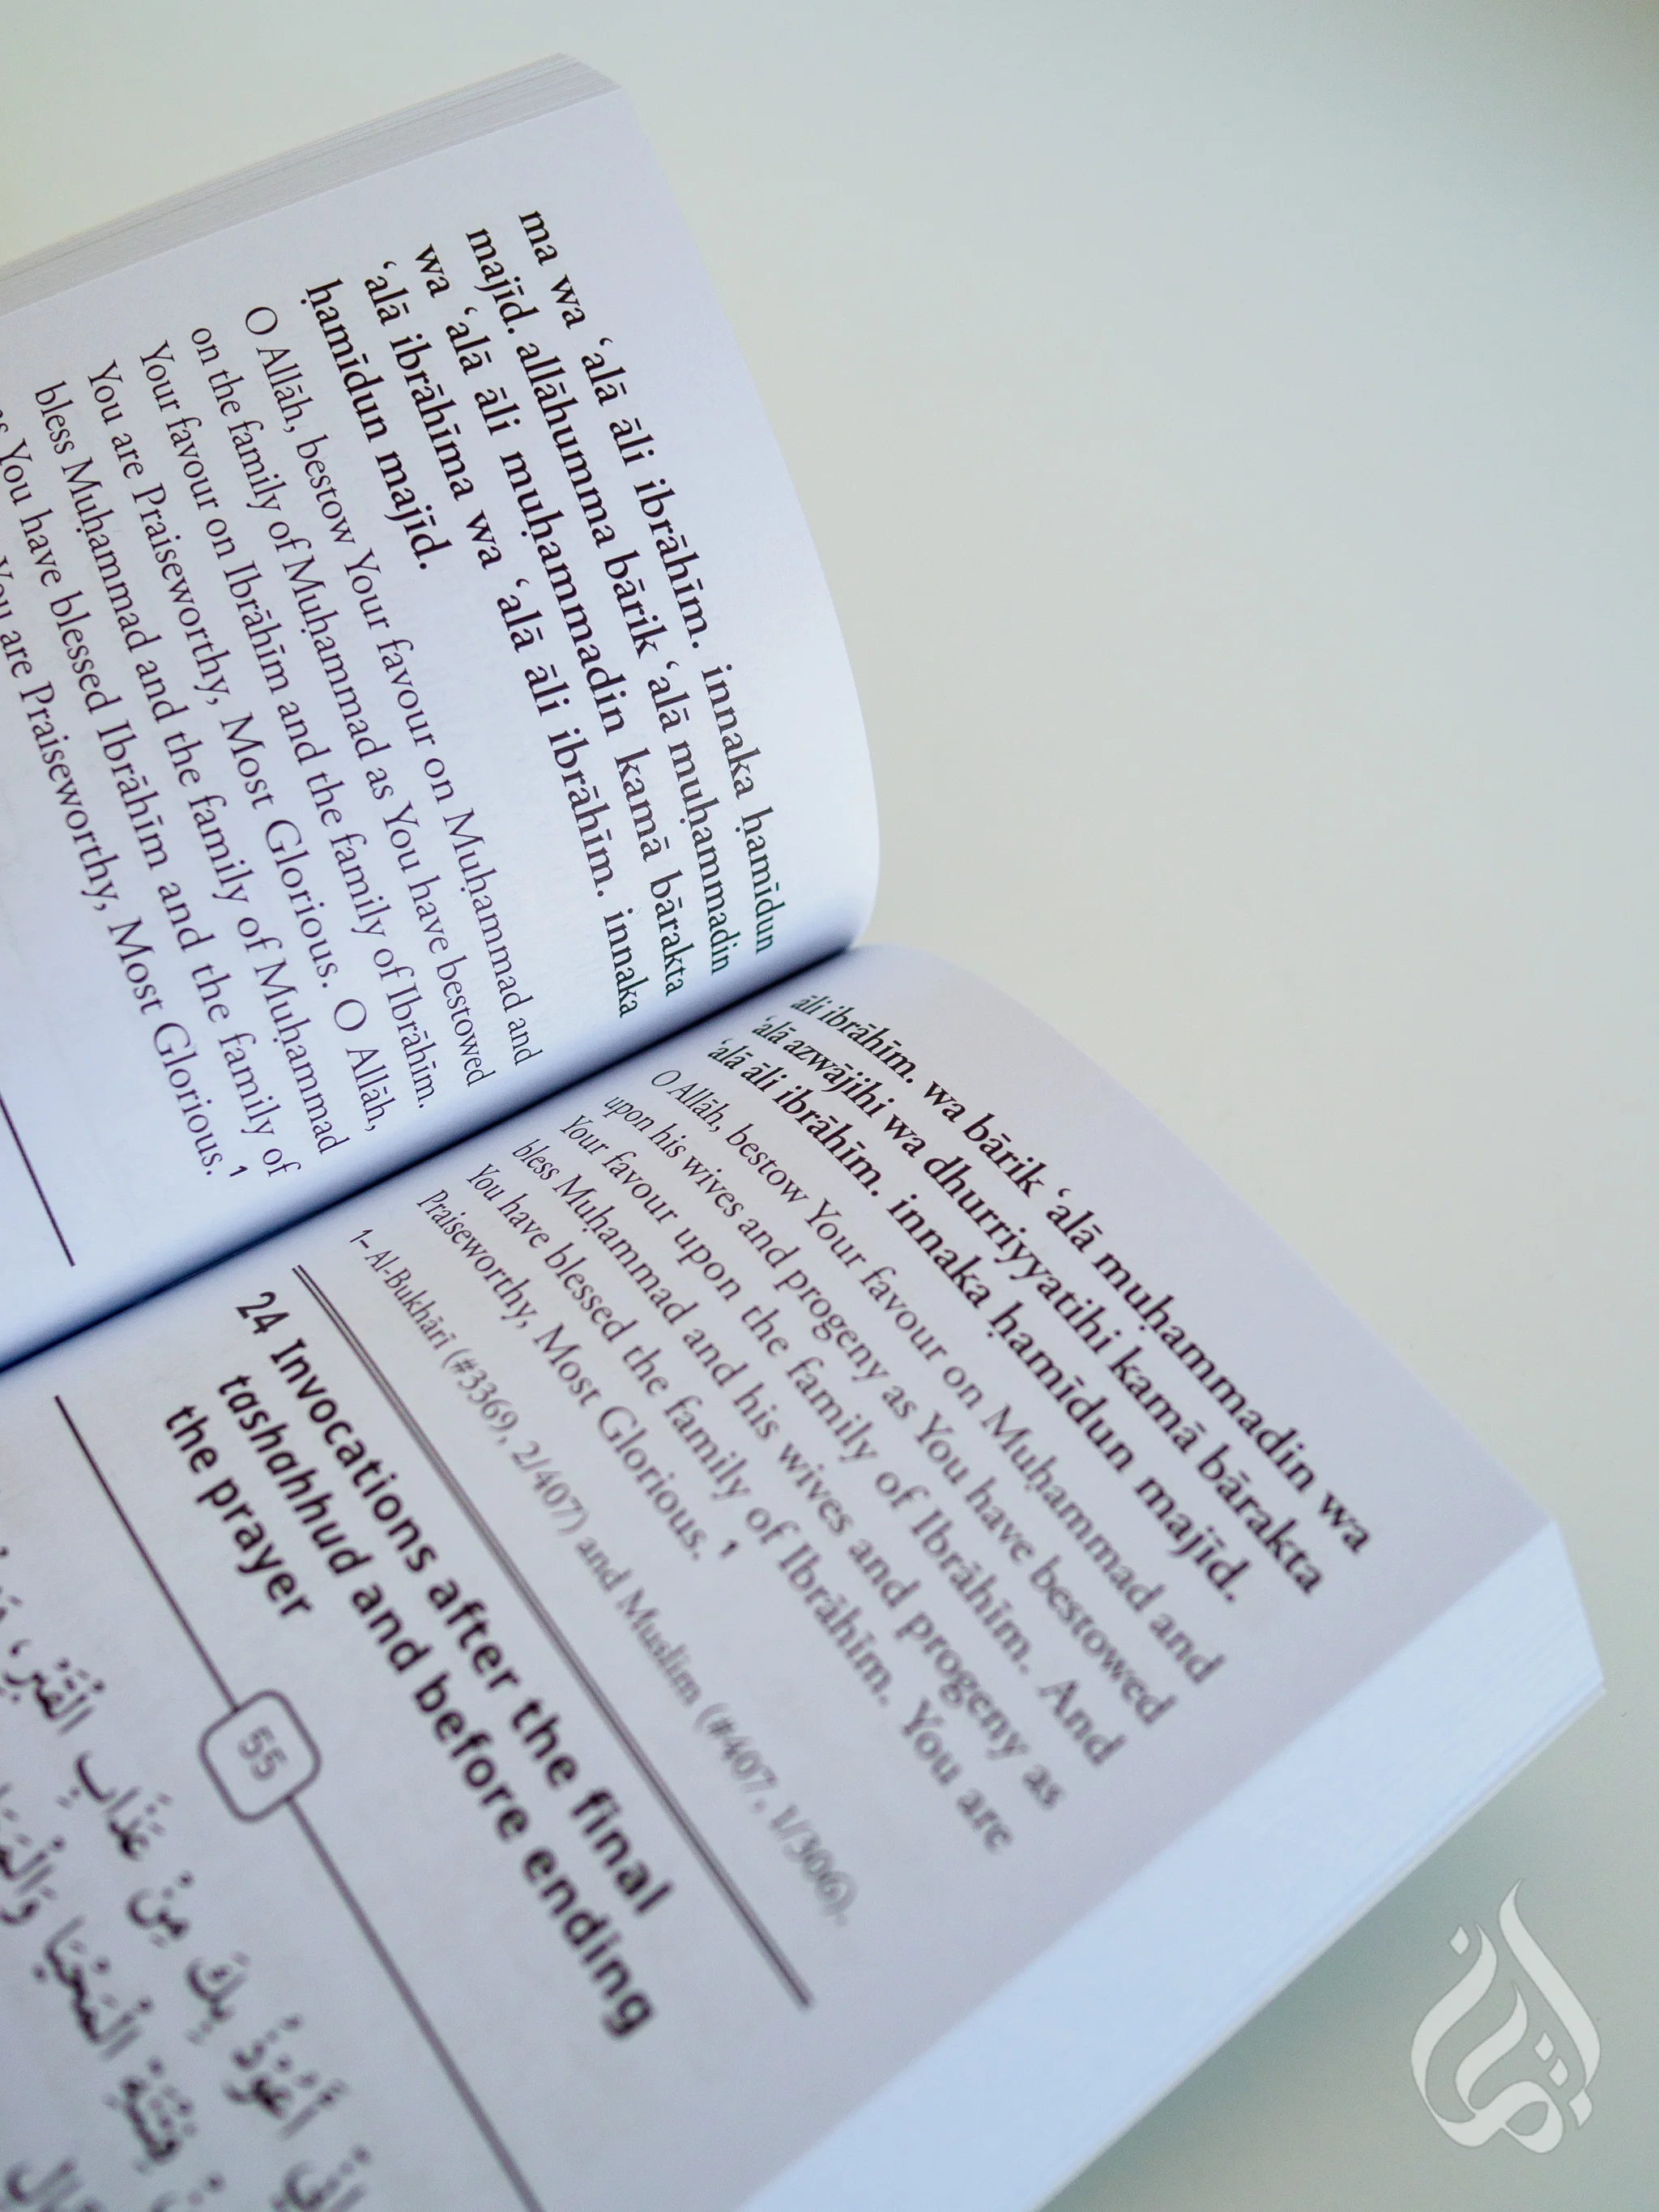 ma wa ‘alā āli ibrāhīm. innaka ḥamīdun
majīd. allāhumma bārik ‘alā muḥammadin
wa ‘alā āli muḥammadin kamā bārakta
‘alā ibrāhīma wa ‘alā āli ibrāhīm. innaka
ḥamīdun majīd.
O Allāh, bestow Your favour on Muḥammad and
on the family of Muḥammad as You have bestowed
Your favour on Ibrāhīm and the family of Ibrāhīm.
You are Praiseworthy, Most Glorious. O Allāh,
bless Muḥammad and the family of Muḥammad
You have blessed Ibrāhīm and the family of
You are Praiseworthy, Most Glorious. 1
āli ibrāhīm. wa bārik ‘alā muḥammadin wa
‘alā azwājihi wa dhurriyyatihi kamā bārakta
‘alā āli ibrāhīm. innaka ḥamīdun majīd.
O Allāh, bestow Your favour on Muḥammad and
upon his wives and progeny as You have bestowed
Your favour upon the family of Ibrāhīm. And
bless Muḥammad and his wives and progeny as
You have blessed the family of Ibrāhīm. You are
Praiseworthy, Most Glorious. 1
1- Al-Bukhārī (#3369, 2/407) and Muslim (#407, 1/306).
24 Invocations after the final
tashahhud and before ending
the prayer
55
أَعُوْذُ بِكَ مِنْ عَذَابِ الْقَبْرِ،
فِتْنَةِ الْمَحْيَا